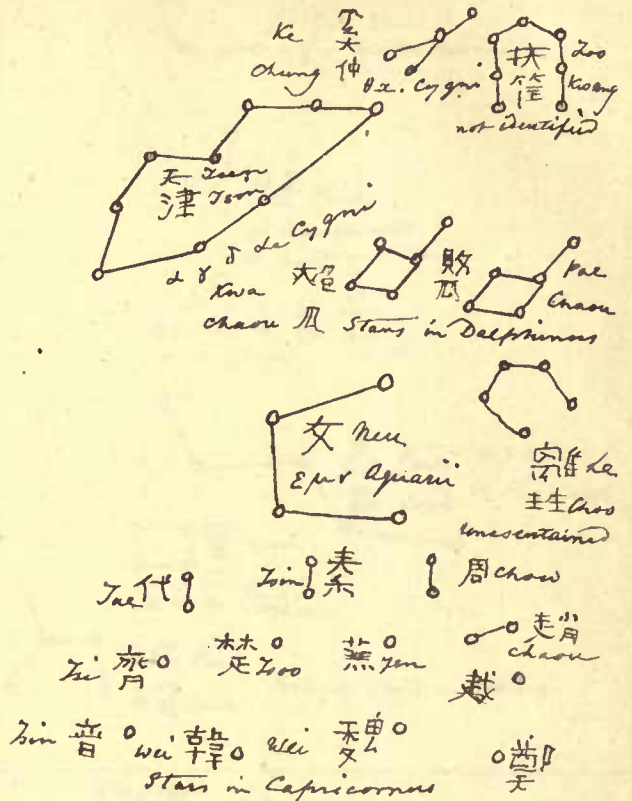 Ke 奚仲
Chung
θ x. Cygni
扶筐 Foo
Kwang
not identified
天津 Tseen
Tsin
α γ δ &c Cygni
Kwa
chaou 瓜
敗瓜 Pae
Chaou
Stars in Delphinus
女 Neu
ε μ ν Aquarii
離 Le
Choo
unascertained
Tae 代
Tsin 秦
周 Chow
Tsi 齊
楚 Tsoo
燕 Yen
趙
chaou
越
Tsin 晉
Wei 韓
Wei 魏
鄭
Stars in Capricornus